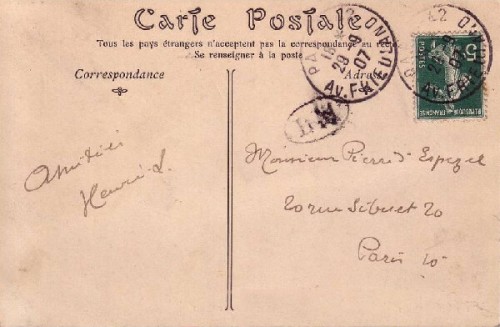 Carte Postale
Tous les pays étrangers n'acceptent pas la correspondance au recto
Se renseigner à la poste
Correspondance
Adresse
PARIS
15
29 9
07
Av. F
5
Amitiés
Henri L.
Monsieur Pierre d'Espezel
20 rue Sibuet 20
Paris